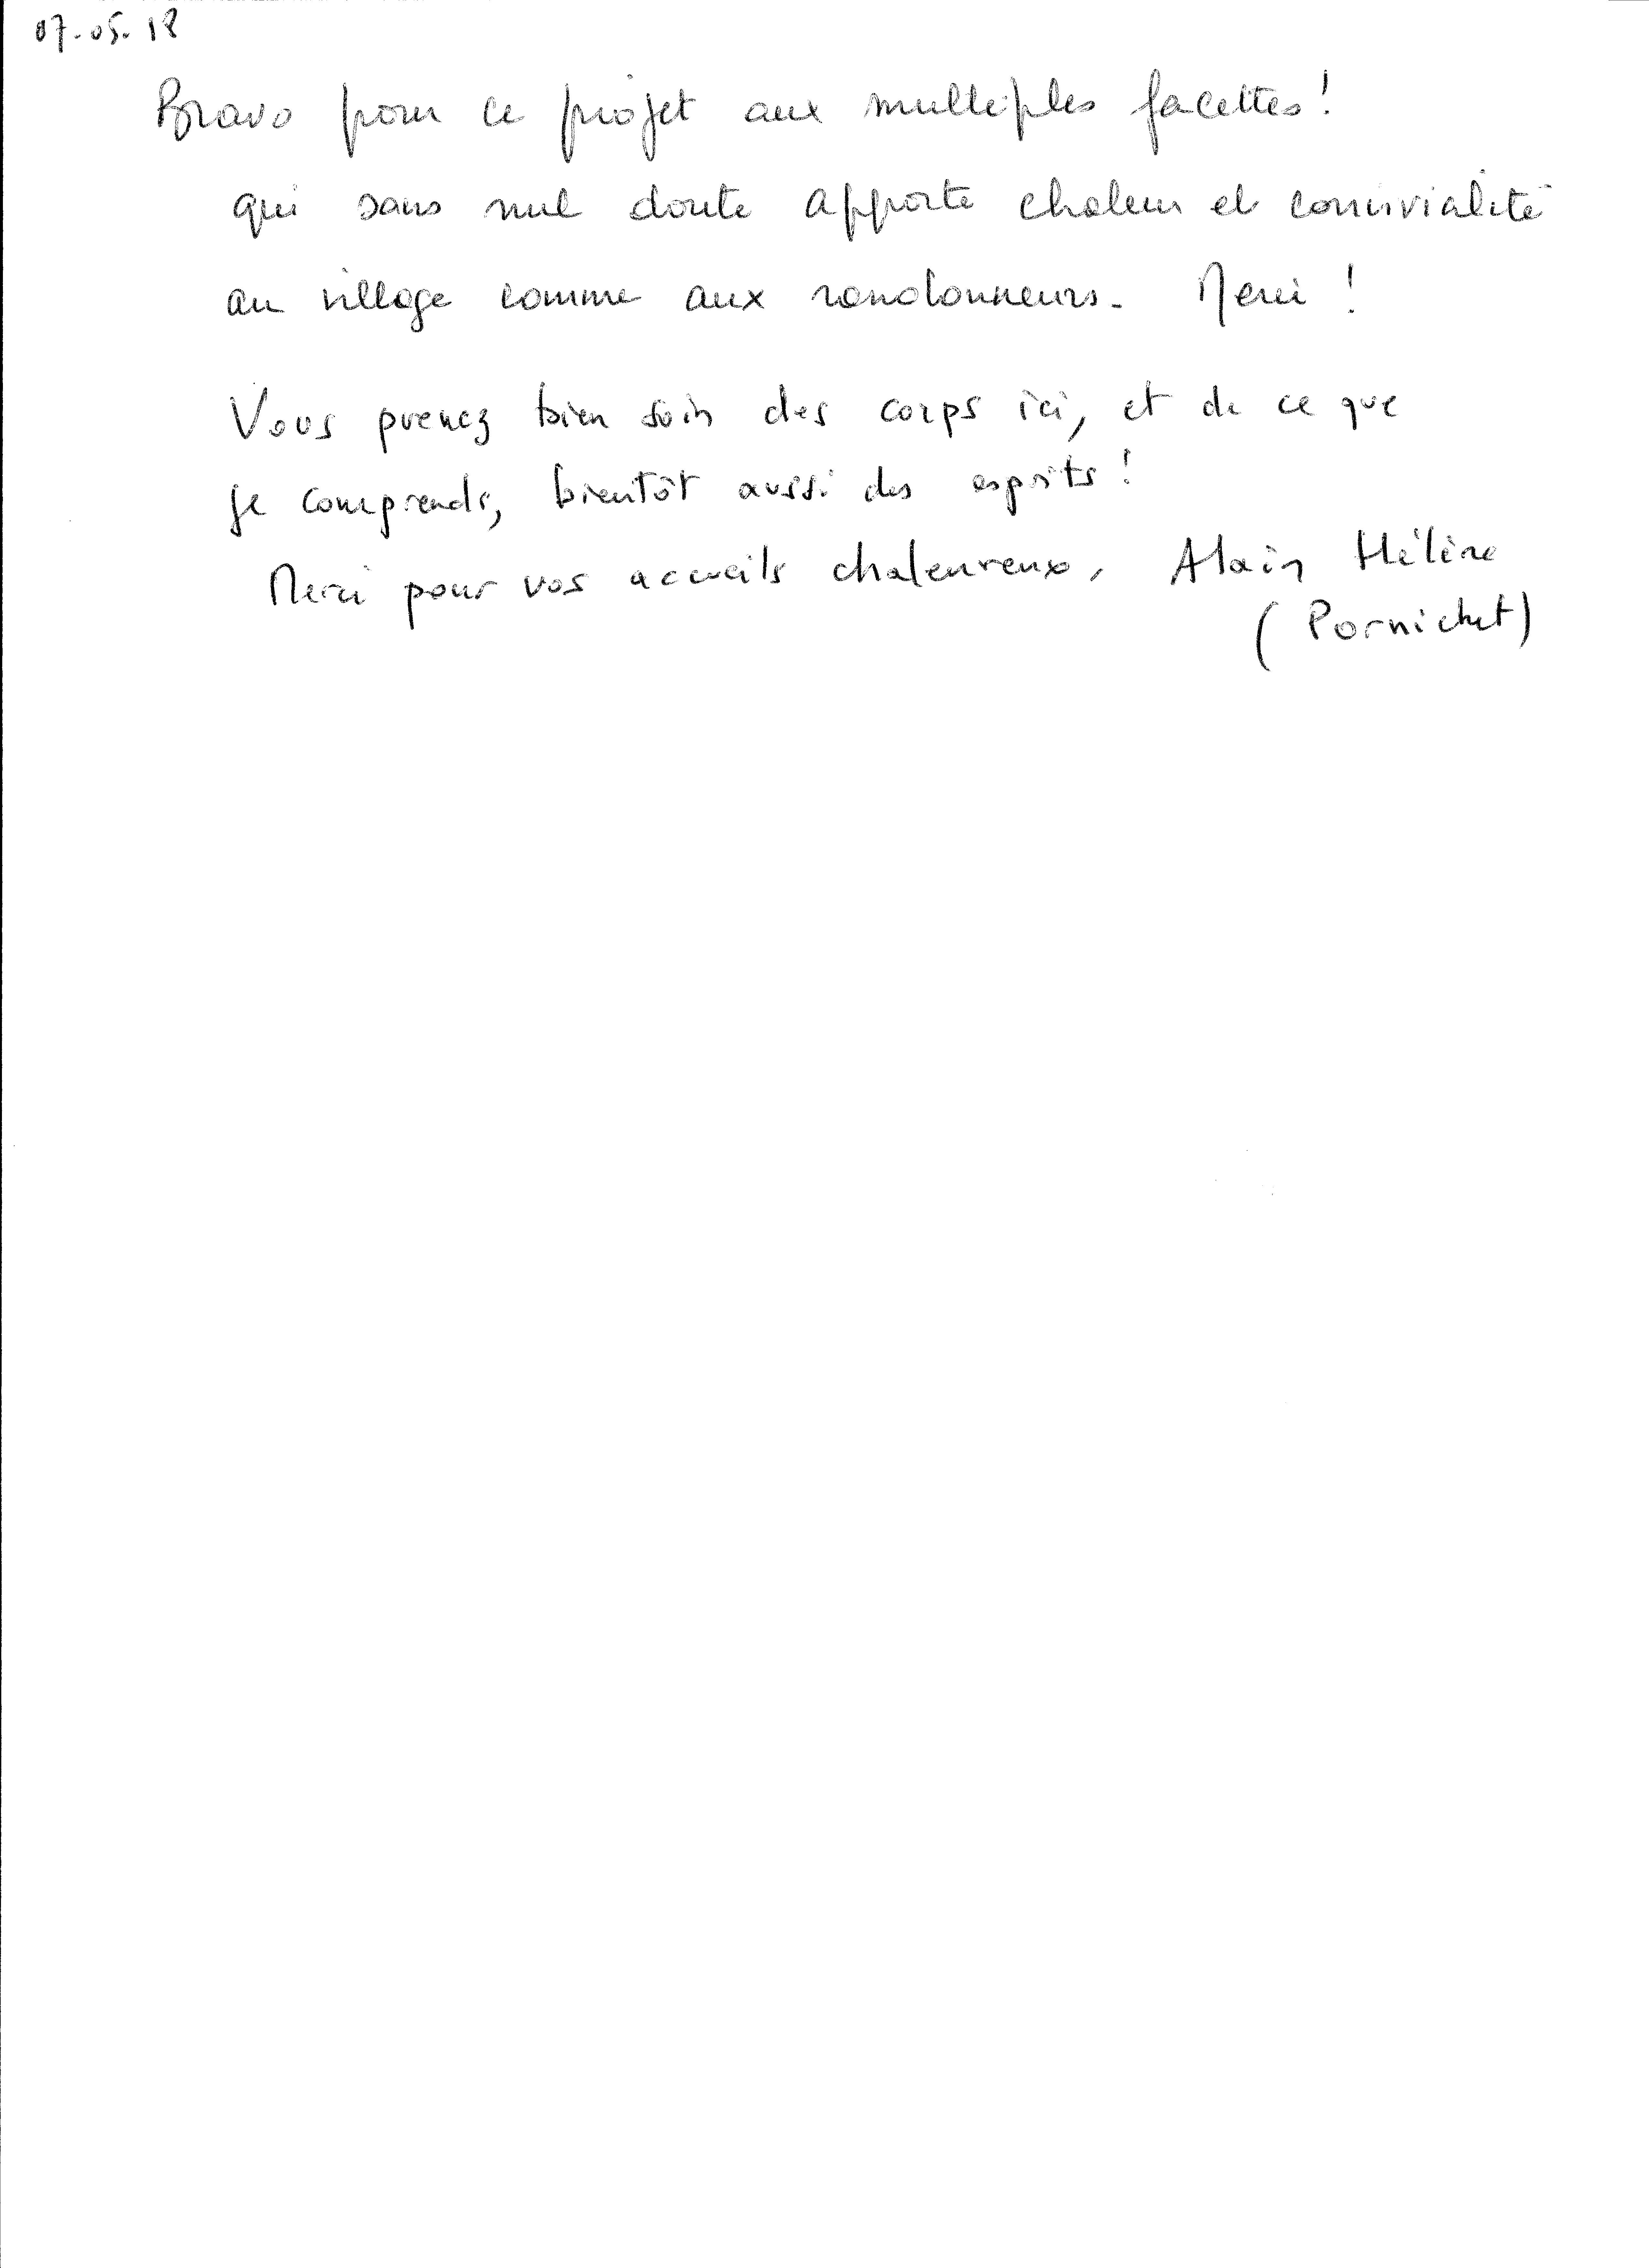 07.05.18
Bravo pour ce projet aux multiples facettes !
qui sans nul doute apporte chaleur et convivialité
au village comme aux randonneurs. Merci !
Vous prenez bien soin des corps ici, et de ce que
je comprends, bientôt aussi des esprits !
Merci pour vos accueils chaleureux, Alain Hélène
(Pornichet)